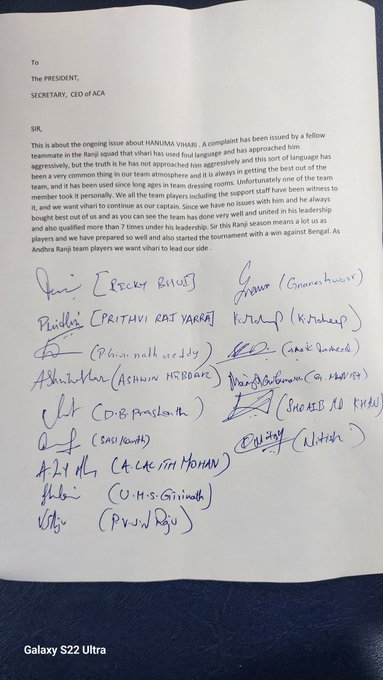 To
The PRESIDENT,
SECRETARY, CEO of ACA
SIR,
This is about the ongoing issue about HANUMA VIHARI . A complaint has been issued by a fellow
teammate in the Ranji squad that vihari has used foul language and has approached him
aggressively, but the truth is he has not approached him aggressively and this sort of language has
been a very common thing in our team atmosphere and it is always in getting the best out of the
team, and it has been used since long ages in team dressing rooms. Unfortunately one of the team
member took it personally. We all the team players including the support staff have been witness to
it, and we want vihari to continue as our captain. Since we have no issues with him and he always
bought best out of us and as you can see the team has done very well and united in his leadership
and also qualified more than 7 times under his leadership. Sir this Ranji season means a lot us as
players and we have prepared so well and also started the tournament with a win against Bengal. As
Andhra Ranji team players we want vihari to lead our side .
[RICKY BHUI] (Gnaneshwar)
[PRITHVI RAJ YARRA]
reddy)
(ASHWIN HEBBAR)
(D.B. Prashanth) (SHOAIB MD KHAN)
(SASIKanth) (Nitish)
(A. LALITH MOHAN)
(U.M.S. Girinath)
(P.V.S.N Raju)
Galaxy S22 Ultra